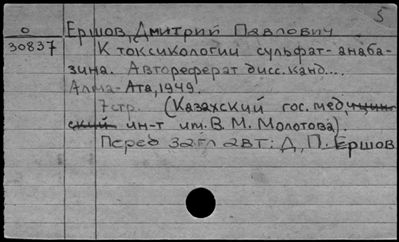 5
О Ершов, Дмитрий Павлович
30837 К токсикологии сульфат-анаба-
зина. Автореферат дисс. канд....
Алма-Ата, 1949.
7стр. (Казахский гос. медицин-
ский ин-т им. В. М. Молотова).
Перед загл авт: Д. П. Ершов